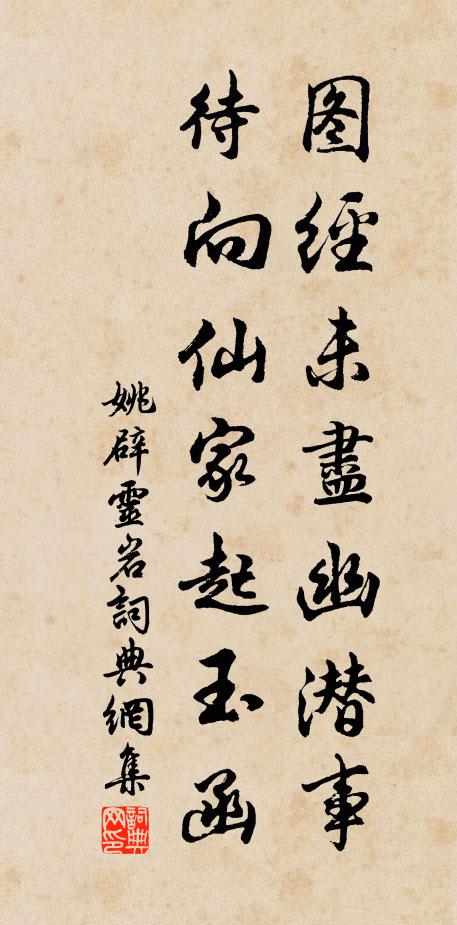 图經未盡幽潜事
待向仙家起玉函
姚辟靈岩詞典網集
詞典网印